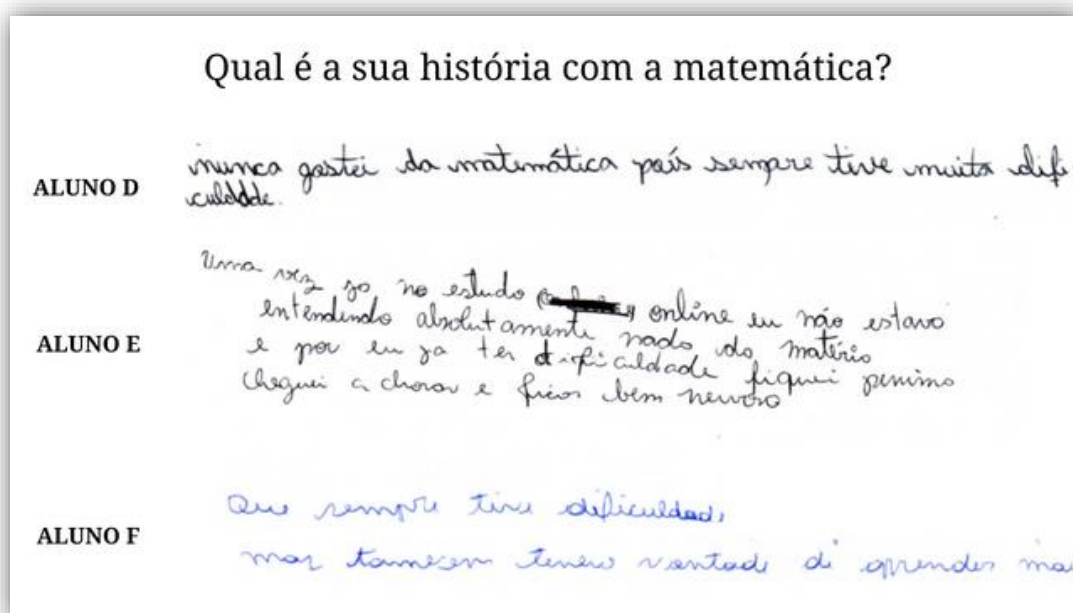 Qual é a sua história com a matemática?
ALUNO D
nunca gostei da matemática país sempre tive muita difi
culdade.
ALUNO E
Uma vez so no estudo online eu não estava
entendendo absolutamente nada do matério
e por eu ja ter dificuldade fiquei
cheguei a chorar e ficar bem nervoso
ALUNO F
Que sempre tive dificuldade
mas vontade di aprender mas